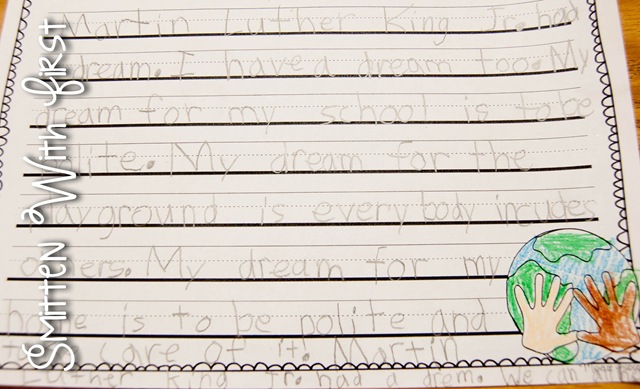 Martin Luther King Jr. had
dream. I have a dream too. My
dream for my school is to be
polite. My dream for the
playground is every body incudes
others. My dream for my
home is to be polite and
take care of it! Martin
Luther King Jr. had a dream. We can
Smitten With First